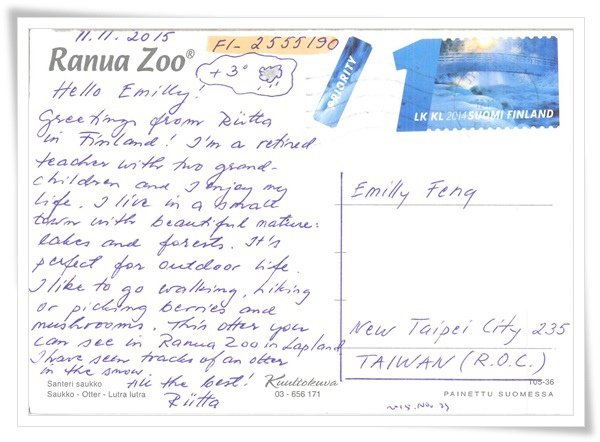 11.11.2015
FI-2555190
Ranua Zoo®
+3°
PRIORITY
1
LK KL 2014 SUOMI FINLAND
Hello Emilly!
Greetings from Riitta
in Finland! I'm a retired
teacher with two grand-
children and I enjoy my
life. I live in a small
town with beautiful nature:
lakes and forests. It's
perfect for outdoor life.
I like to go walking, hiking
or picking berries and
mushrooms. This otter you
can see in Ranua Zoo in Lapland
I have seen tracks of an otter
in the snow.
All the best!
Riitta
Emilly Feng
New Taipei City 235
TAIWAN (R.O.C.)
Santeri saukko
Saukko - Otter - Lutra lutra
Kuultokuva
03 - 656 171
105-36
PAINETTU SUOMESSA